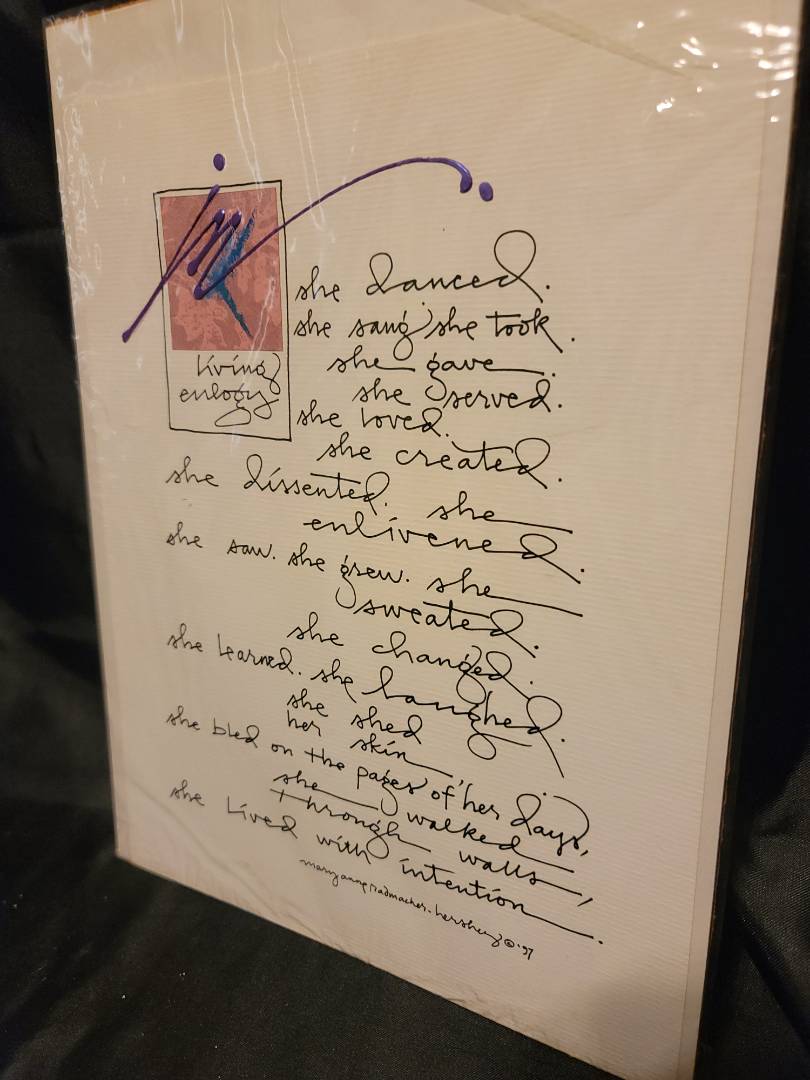 living
eulogy
she danced.
she sang she took.
she gave.
she served.
she loved.
she created.
she dissented. she
enlivened.
she saw. she grew. she
sweated.
she changed.
she learned. she laughed.
she shed
her skin,
she bled on the pages of her days,
she walked
through walls,
she lived with intention.
maryanne radmacher-hershey © '97